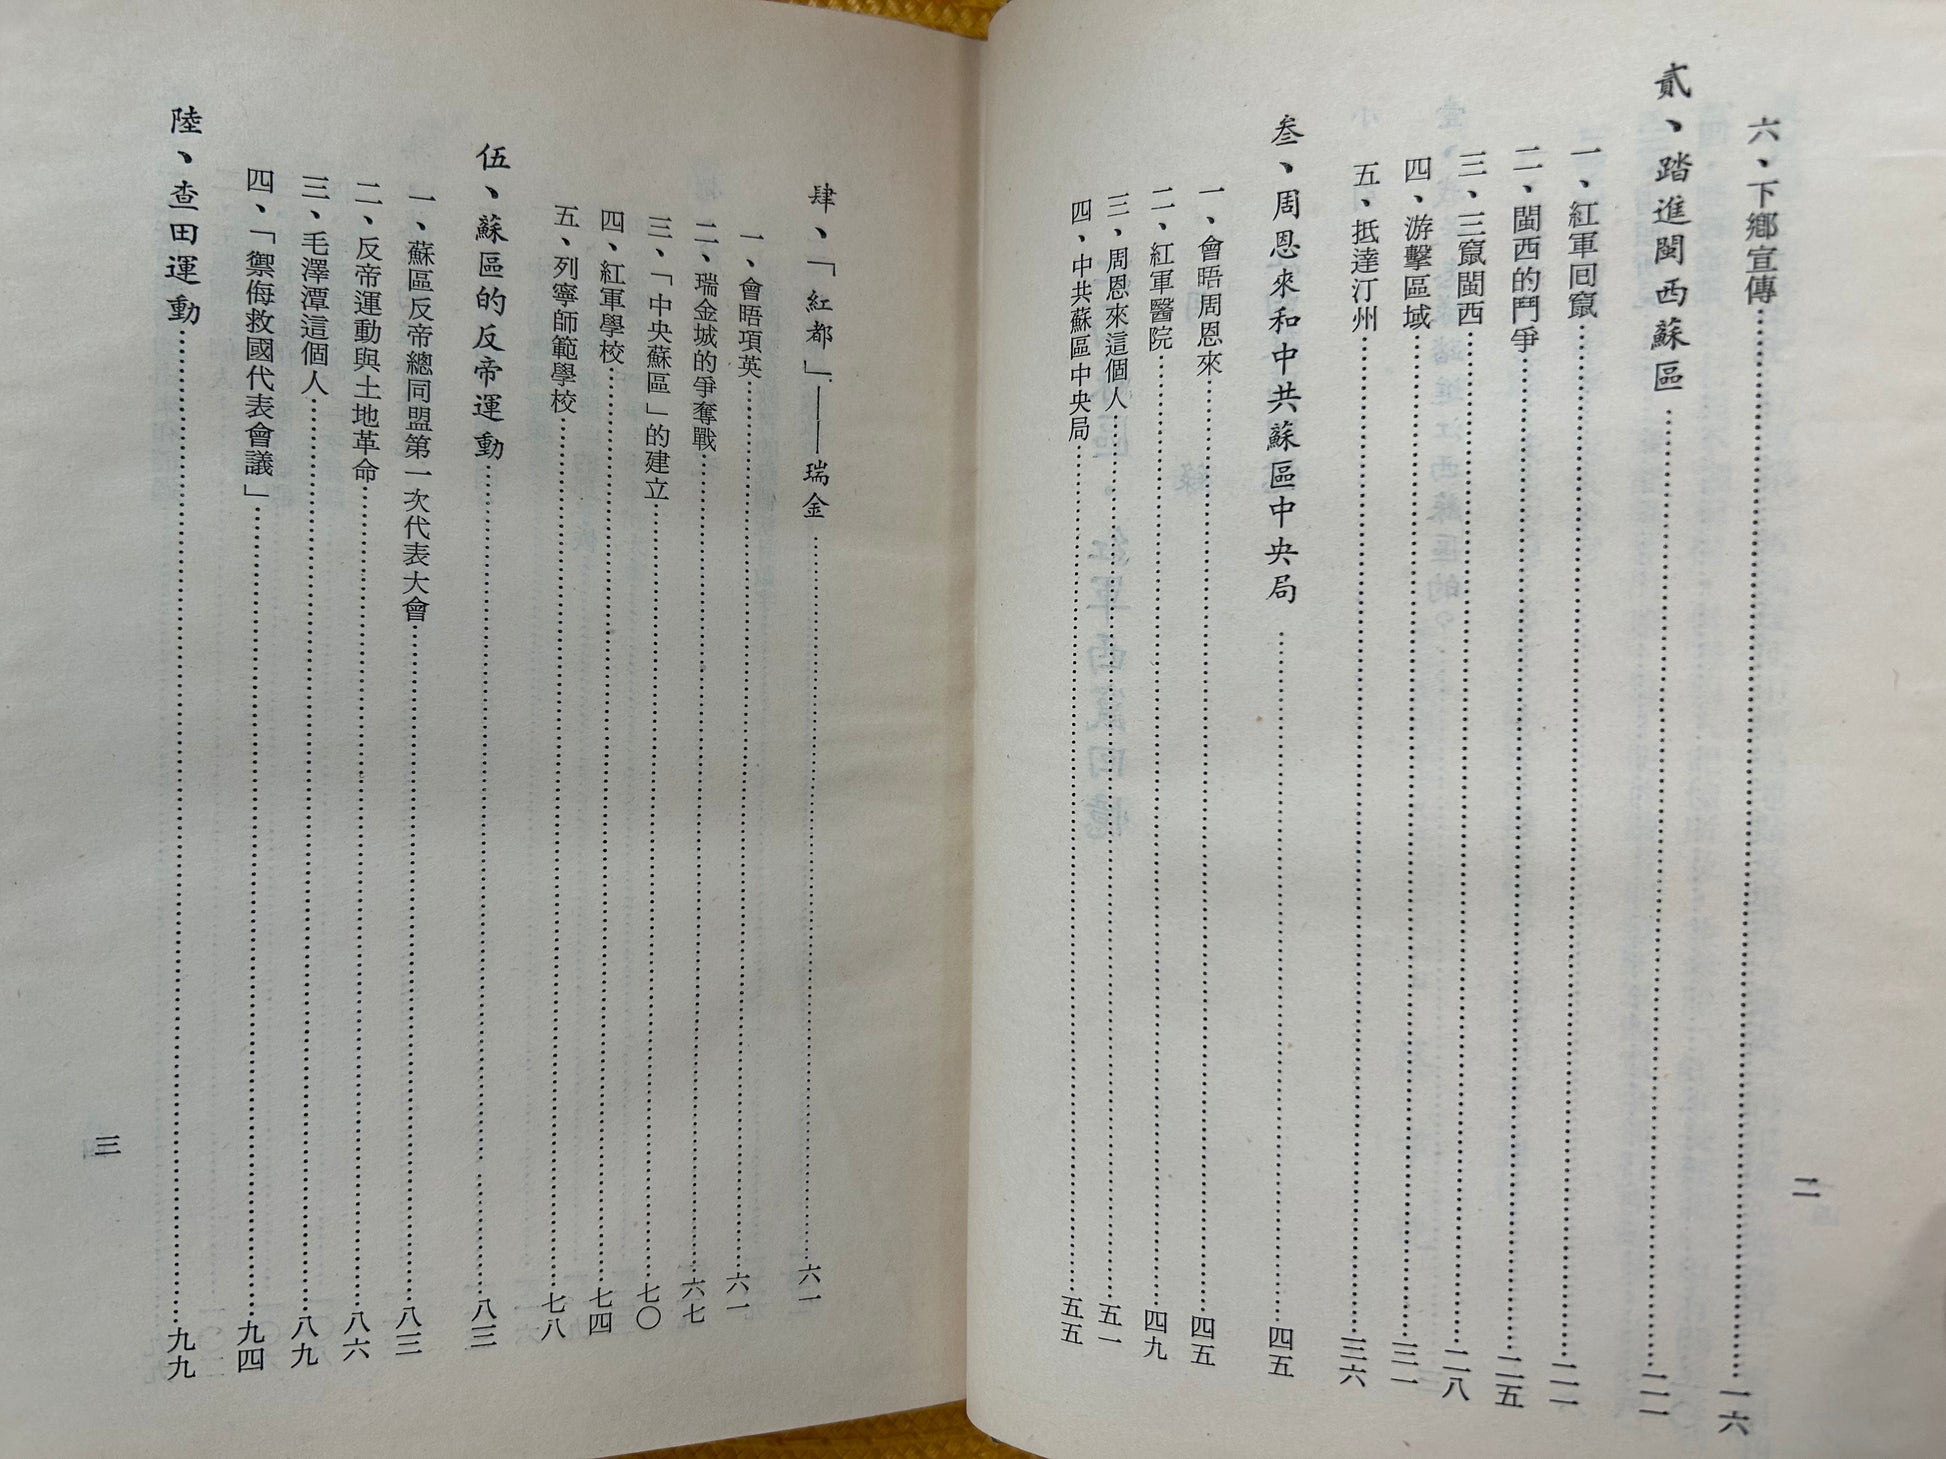 六、下鄉宣傳……一六
貳、踏進閩西蘇區……二一
一、紅軍回竄……二一
二、閩西的鬥爭……二五
三、三竄閩西……二八
四、游擊區域……三一
五、抵達汀州……三六
叁、周恩來和中共蘇區中央局……四五
一、會晤周恩來……四五
二、紅軍醫院……四九
三、周恩來這個人……五一
四、中共蘇區中央局……五五
二
肆、「紅都」——瑞金……六一
一、會晤項英……六一
二、瑞金城的爭奪戰……六七
三、「中央蘇區」的建立……七〇
四、紅軍學校……七四
五、列寧師範學校……七八
伍、蘇區的反帝運動……八三
一、蘇區反帝總同盟第一次代表大會……八三
二、反帝運動與土地革命……八六
三、毛澤潭這個人……八九
四、「禦侮救國代表會議」……九四
陸、查田運動……九九
三